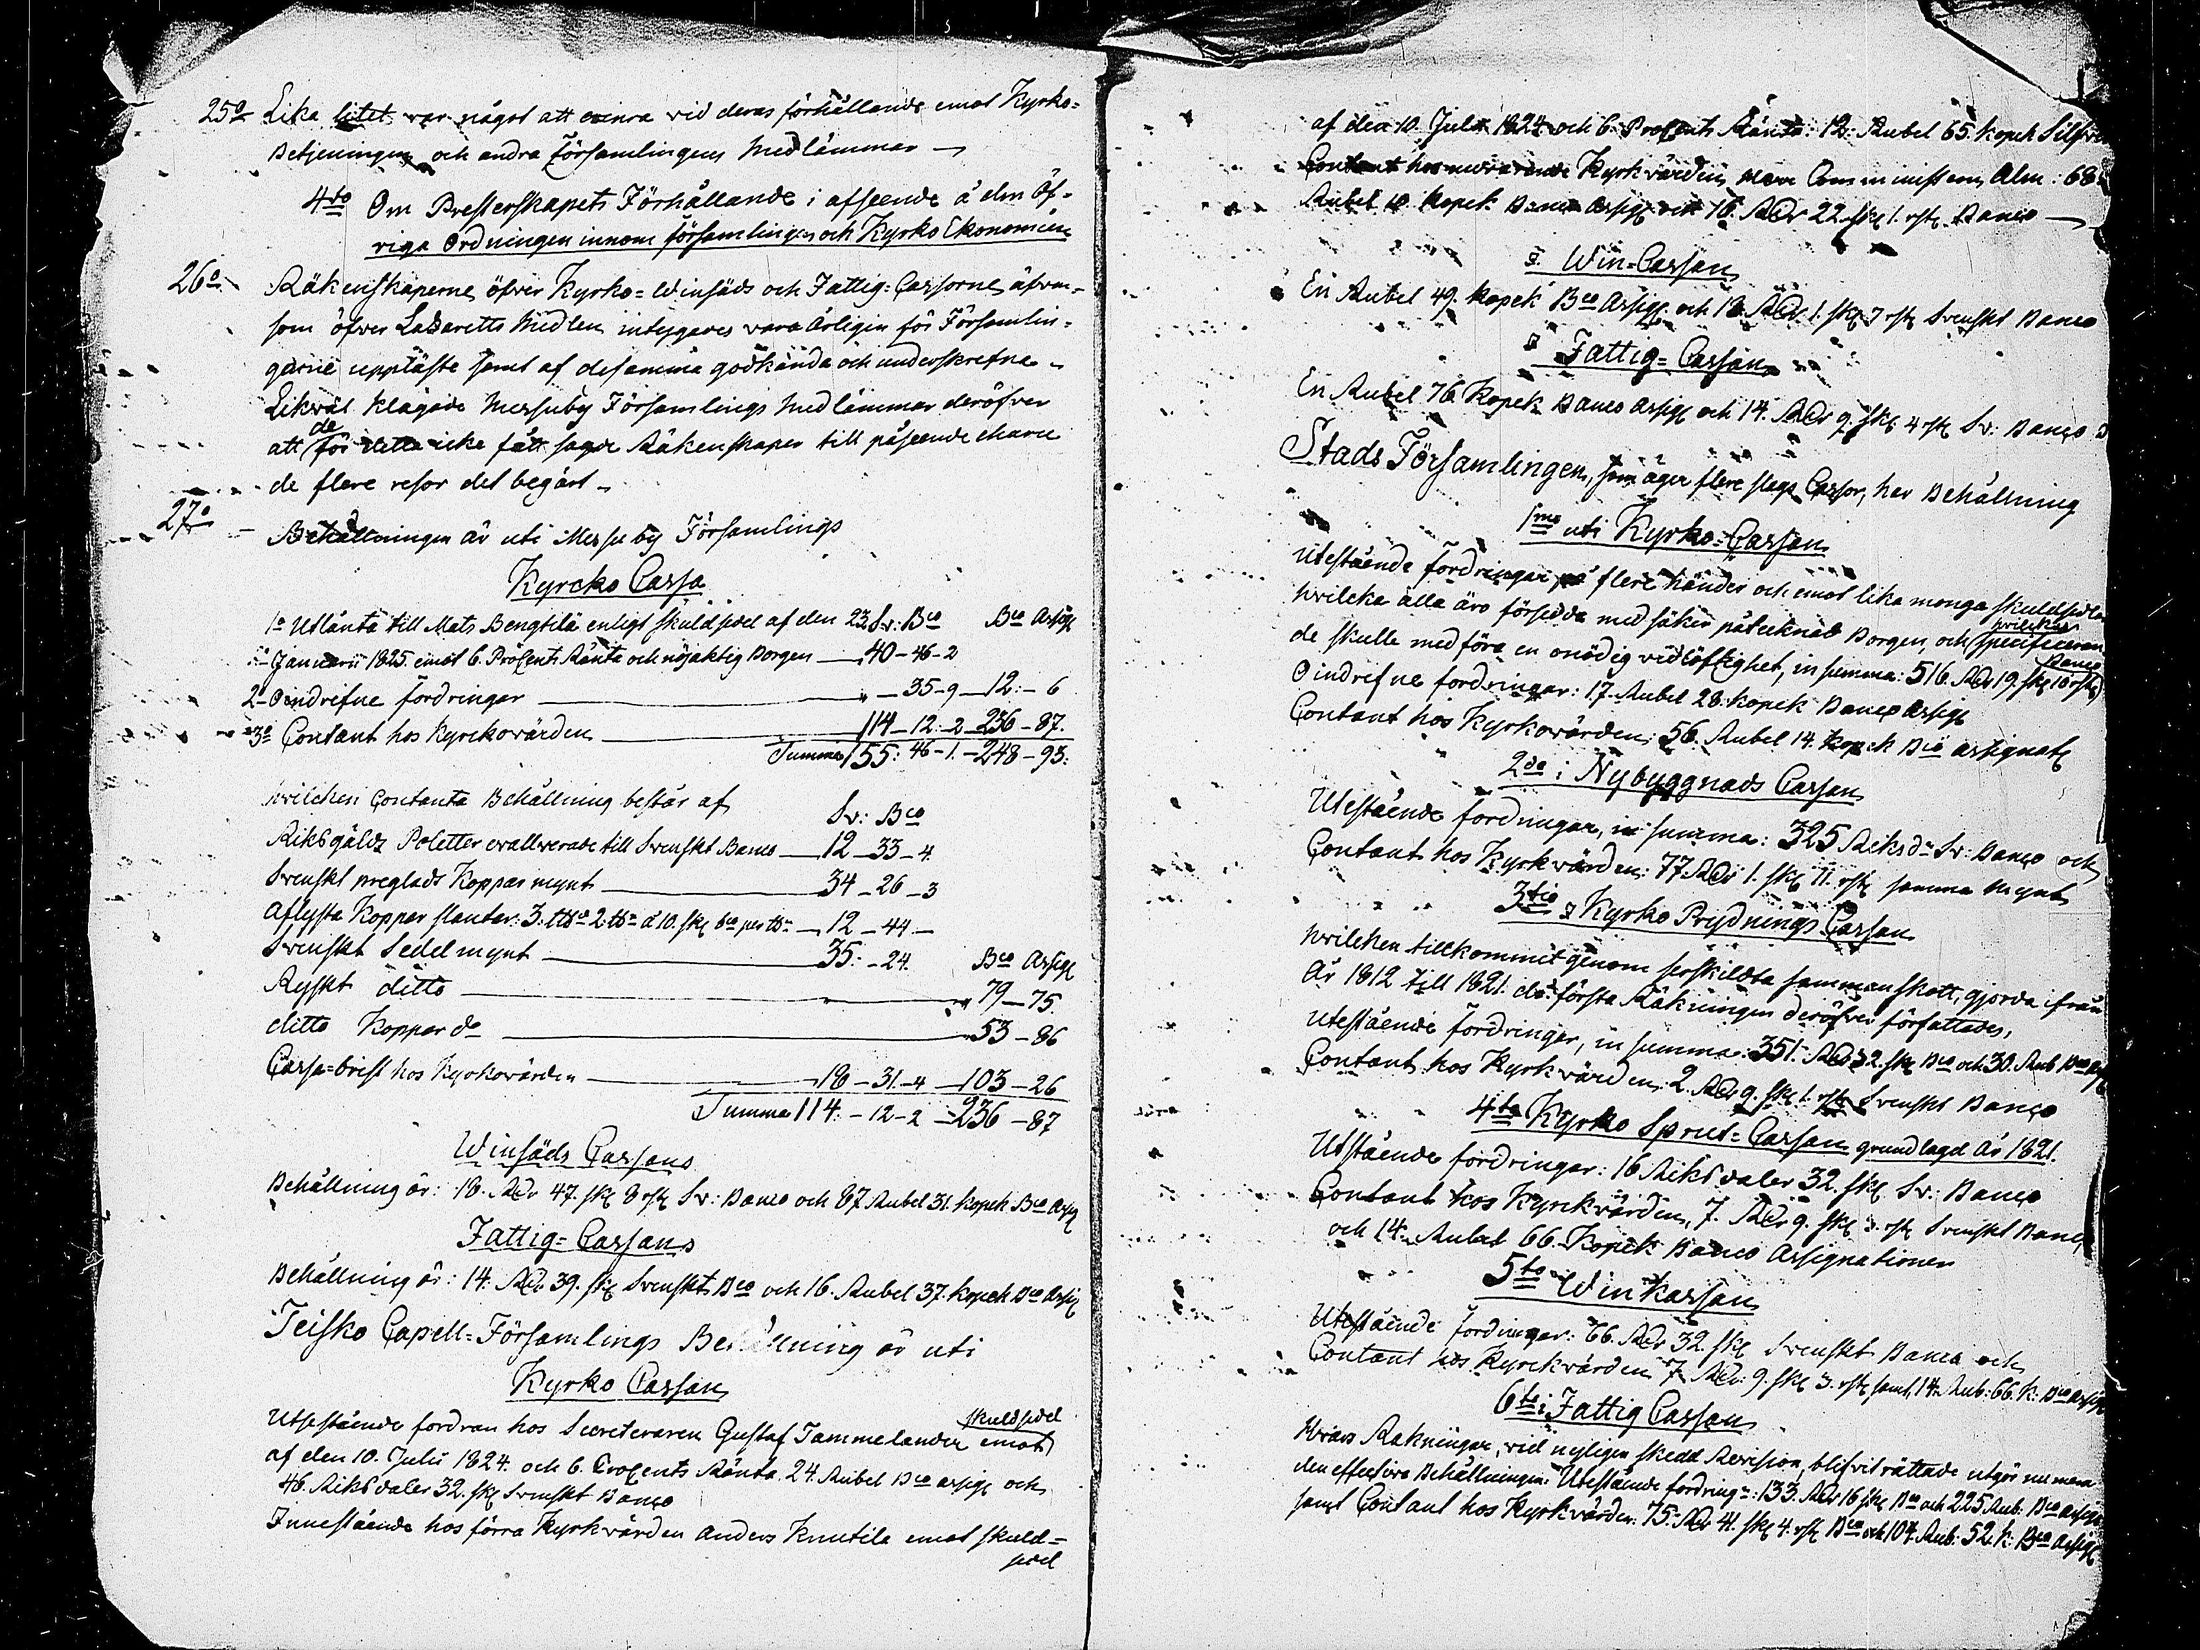 25o Lika litet var något att erinra vid deras förhållande emot Kyrko=
Betjeningen och andra Församlingens Medlämmar —
4to Om Presterskapets Förhållande i afseende å den öf-
riga Ordningen innom församlingen och Kyrko Ekonomien
26o Räkenskaperne öfver Kyrko= Winsäds och Fattig= Cassorne, äfven-
som öfver Lasaretts Medlen intygades vara årligen för Församlin-
garne uppläste samt af desamma godkända och underskrefne –
Likväl klagade Messuby Församlings Medlämmar deröfver
att de för detta icke fått sagde Räkenskaper till påseende ehuru
de flere resor det begärt –
27o – Behållningen är uti Messuby Församlings
Kyrcko Cassa
1o Utlånta till Mats Bengtilä enligt skuldsedel af den 23 Sv: Bco Bco Assig
Januarii 1825. emot 6. Procents Ränta och nöjaktig Borgen — 40-46-2
2o Oindrifne fordringar — " – 35-9 – 12: – 6
3o Contant hos Kyrckovärden — 114 – 12: 2 – 236 – 87.
Summa 155: 46 – 1. – 248 – 93:
hvilcken Contanta Behållning består af Sv: Bco
Riksgälds Poletter evalverade till Svenskt Banco — 12 – 33 – 4.
Svenskt preglads Koppar mynt — 34 – 26 – 3
Aflysta Koppar slantar: 3. ... 2. ... à 10. sk bco per ... — 12 – 44 –
Svenskt Sedelmynt — 35: – 24. Bco Assig
Ryskt ditto — " 79 – 75.
ditto Koppar do — 53 – 86
Cassa=brist hos Kyrkovärden — 18 – 31 – 4 – 103 – 26
Summa 114: – 12 – 2 – 236 – 87
Winsäds Cassans
Behållning är: 18. Rdr 47. sk 8 rst Sv: Banco och 87 Rubel 31. kopek Bco Assig
Fattig= Cassans
Behållning är: 14. Rdr 39. sk Svenskt Bco och 16. Rubel 37. kopek Bco Assig
Teisko Capell= Församlings Behållning är uti
Kyrko Cassan
Utestående fordran hos Secreteraren Gustaf Tammelander emot skuldsedel
af den 10. Julii 1824. och 6. Procents Ränta. 24. Rubel Bco assig och
46. Riksdaler 32. sk Svenskt Banco
Innestående hos förra Kyrkvärden Anders Knutila emot skuld=
sedel
af den 10. Julii 1824 och 6. Procents Ränta: 12. Rubel 65. kopek Silfver
Contant hos nuvarande Kyrkvärden, Herr Comministern Alm: 68.
Rubel 10. kopek Banco Assig och 18. Rdr 22. sk 1. rst. Banco —
i Win=Cassan
En Rubel 49. kopek Bco Assig och 18. Rdr 1. sk 7 rst Svenskt Banco
i Fattig= Cassan
En Rubel 76. Kopek Banco Assig och 14. Rdr 9. sk 4 rst Sv: Banco
Stads Församlingen, som äger flere slags Cassor, har Behållning
1mo uti Kyrko= Cassan
Utestående fordringar på flere händer och emot lika monga skuldsedlar
hvilcka alla äro försedda med säker påtecknad Borgen, och hvilckas specificeran=
de skulle medföra en onödig vidlöftighet, in summa: 516. Rdr 19. sk 10 rst Banco
Oindrifne fordringar: 17. Rubel 28. kopek Banco Assig
Contant hos Kyrkovärden: 56. Rubel 14. Kopek Bco assignat
2do i Nybyggnads Cassan
Utestående fordringar, in summa: 325 Riksdr Sv: Banco och
Contant hos Kyrkvärden: 77. Rdr 1. sk 11. rst samma mynt
3tio i Kyrko Prydnings Cassan
hvilcken tillkommit genom serskildta sammanskott, gjorda ifrån
År 1812 till 1821. då första Räkningen deröfver författades,
Utestående fordringar, in summa: 351. Rdr 32. sk Bco och 30. Rub Bco
Contant hos Kyrkvärden: 2. Rdr 9. sk 1. rst Svenskt Banco
4to Kyrko Sprut= Cassan grundlagd År 1821.
Utstående fordringar: 16 Riksdaler 32. sk Sv: Banco
Contant hos Kyrckvärden, 7. Rdr 9. sk 3. rst Svenskt Banco
och 14. Rubel 66. Kopek Banco Assignationer
5to Winkassan
Utestående fordringar: 66. Rdr 32. sk Svenskt Banco och
Contant hos Kyrckvärden 7. Rdr: 9. sk 3. rst samt 14. Rub: 66. k: Bco Assig
6to i Fattig Cassan
Hvars Räkningar, vid nyligen skedd Revision, blifvit rättade utgör numera
den effective Behållningen: Utestående fordringr: 133. Rdr 16 sk Bco och 225 Rub. Bco Assig
samt Contant hos Kyrkvärden: 75. Rdr 41. sk 4. rst Bco och 104 Rub: 52 k: Bco Assig